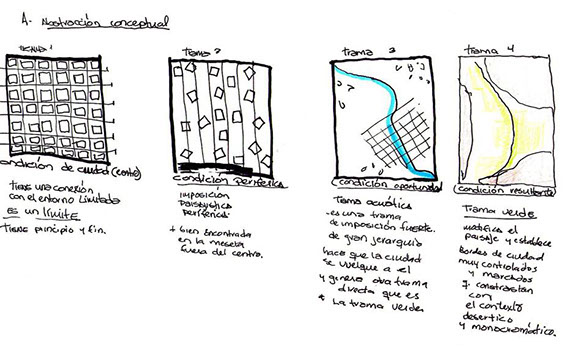 A. Abstracción conceptual
trama 1
trama 2
trama 3
trama 4
condición de ciudad (corte)
tiene una conexión
con el entorno limitada
es un límite
Tiene principio y fin.
condición periférica
imposición
paisajística
periférica
+ bien encontrada
en la meseta
fuera del centro.
(condición oportunidad)
Trama acuática
es una trama
de imposición fuerte.
de gran jerarquía
hace que la ciudad
se vuelque a el
y genera otra trama
directa que es
* La trama verde
(condición resultante)
Trama verde
modifica el
paisaje y establece
Bordes de ciudad
muy controlados
y marcados
y contrastan
con
el contexto
desertico
y monocromático.